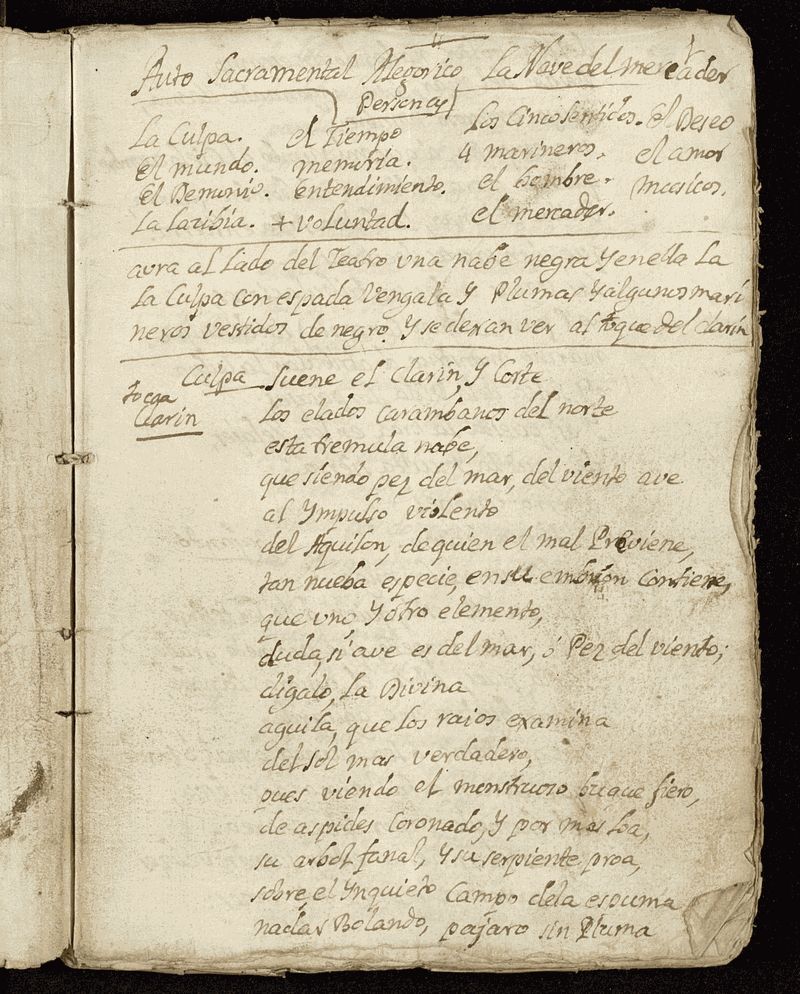 Auto Sacramental Alegorico La Nave del mercader
Personas
La Culpa. el Tiempo Los Cinco Sentidos. El Deseo
El mundo. memoria. 4 marineros. el amor
El Demonio. entendimiento. el hombre. musicos.
La Lasibia. + voluntad. el mercader.
avra al Lado del Teatro una nabe negra Y en ella La
La Culpa con espada Vengala Y Plumas Y algunos mari
neros vestidos de negro. Y se deran ver al toque del clarin
Culpa Suene el Clarin, Y Corte
tocga Clarin
Los elados carambanos del norte
esta tremula nabe,
que siendo pez del mar, del viento ave
al Ympulso violento
del Aquilon, de quien el mal Previene,
tan nueba especie, en su embrion Contiene,
que uno Y otro elemento,
duda, si ave es del mar, ó Pez del viento;
digalo, La Divina
aguila, que los raios examina
del sol mas verdadero,
pues viendo el monstruoso buque fiero,
de aspides Coronado, Y por mas Loa,
su arbol fanal, Y su serpiente proa,
sobre, el Ynquieto Campo dela espuma
nadar Bolando, pajaro sin Pluma